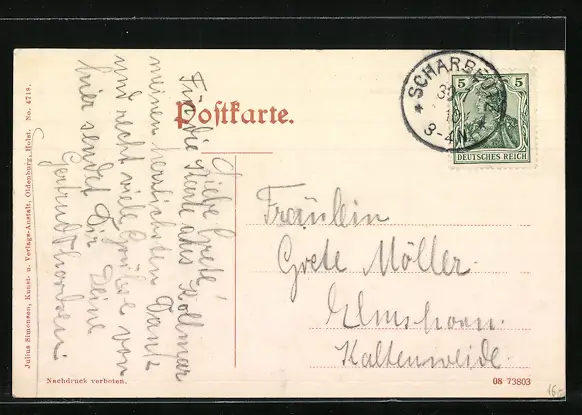 Postkarte.
SCHARBEUTZ
31
10
3-4N
5
5
DEUTSCHES REICH
Liebe Grete!
Für die Karte aus Kollmar
meinen herzlichsten Dank
und recht viele Grüße von
hier sendet Dir Deine
Gertrud Thordsen.
Fräulein
Grete Möller.
Elmshorn.
Kaltenweide.
Julius Simonsen, Kunst- u. Verlags-Anstalt, Oldenburg, Holst. No. 4718.
Nachdruck verboten.
08 73803